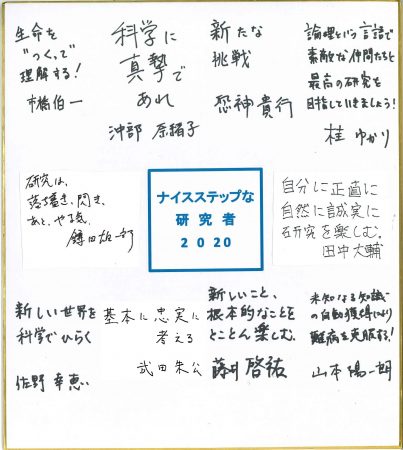 生命を
"つくって"
理解する!
市橋伯一
科学に
真摯で
あれ
沖部 奈緒子
新たな
挑戦
恐神 貴行
論理という言語で
素敵な仲間たちと
最高の研究を
目指していきましょう!
桂 ゆかり
研究は、
落ち着き、閃き、
あと、やる気。
鎌田雄一郎
ナイスステップな
研究者
2020
自分に正直に
自然に誠実に
研究を楽しむ。
田中大輔
新しい世界を
科学でひらく
佐野 幸恵
基本に忠実に
考える
武田朱公
新しいこと、
根本的なことを
とことん楽しむ。
藤井 啓祐
未知なる知識
の自動獲得により
難病を克服する!
山本 陽一朗